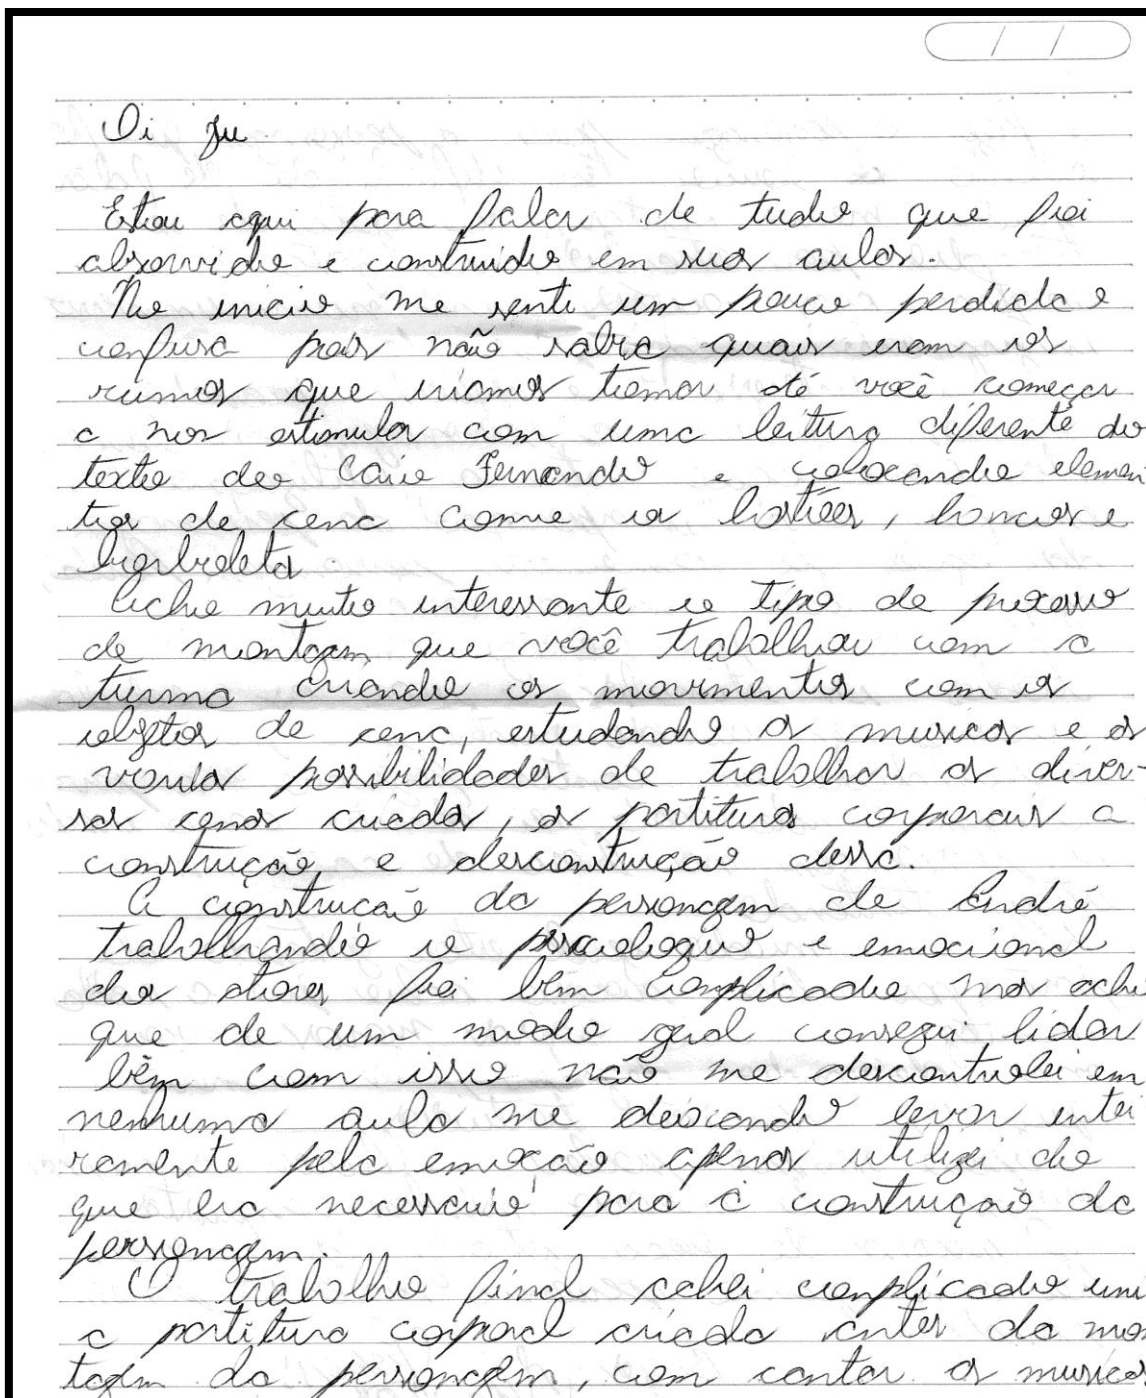 Oi Ju
Estou aqui para falar de tudo que foi
absorvido e construido em suas aulas.
No inicio me senti um pouco perdida e
confusa pois não sabia quais eram os
rumos que iriamos tomar até você começar
a nos estimular com uma leitura diferente do
texto do Caio Fernando e colocando elemen
tos de cena como os bastões, bancos e
borboleta
Acho muito interessante o tipo de processo
de montagem que você trabalhou com a
turma criando os movimentos com os
objetos de cena, estudando as musicas e as
varias possibilidades de trabalhar as diver-
sas cenas criadas, as partituras corporais a
construção e desconstrução dessa.
A construcão da personagem de André
trabalhando o psicologico e emocional
dos atores foi bem complicado mas achi
que de um modo geral consegui lidar
bem com isso não me descontrolei em
nenhuma aula me deixando levar intei
ramente pela emoção apenas utilizei do
que era necessario para a construção da
personagem.
O trabalho final achei complicado uni
a partitura corporal criada antes da mon
tagem da personagem, com cantar as musicas